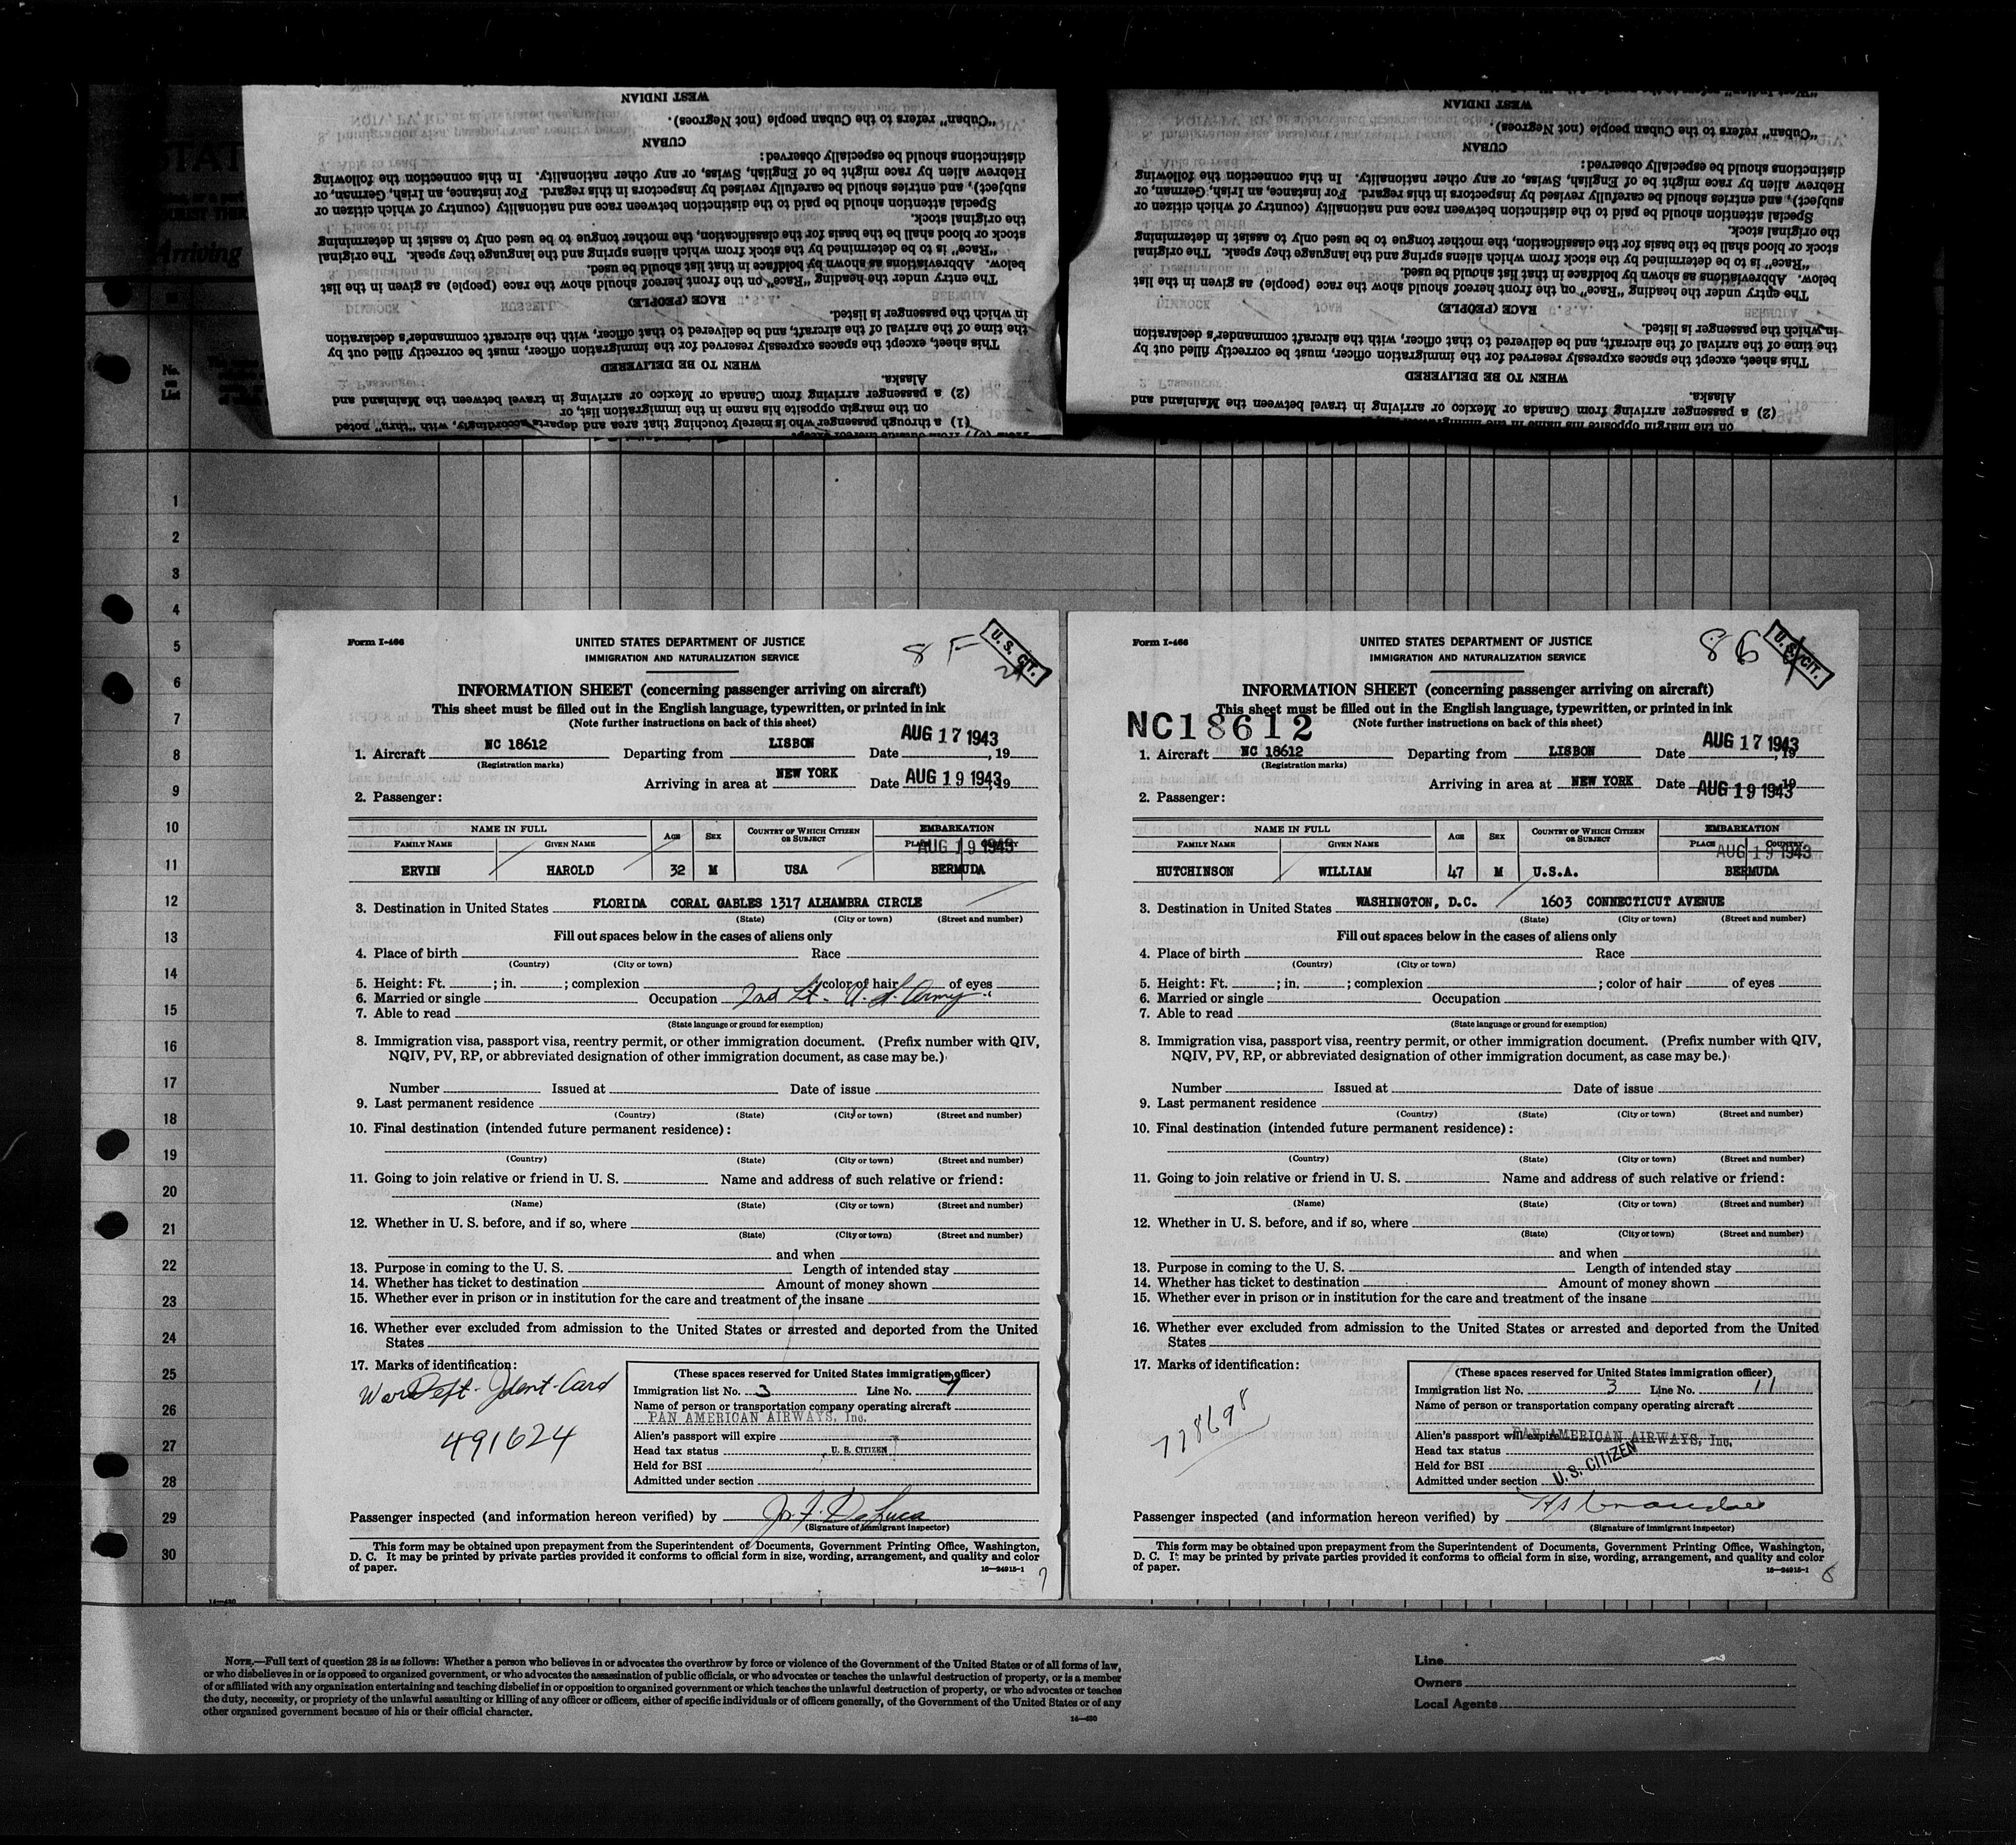 WEST INDIAN
"Cuban" refers to the Cuban people (not Negroes).
CUBAN
distinctions should be especially observed:
Hebrew alien by race might be of English, Swiss, or any other nationality. In this connection the following
subject), and entries should be carefully revised by inspectors in this regard. For instance, an Irish, German, or
Special attention should be paid to the distinction between race and nationality (country of which citizen or
the original stock.
stock or blood shall be the basis for the classification, the mother tongue to be used only to assist in determining
"Race" is to be determined by the stock from which aliens spring and the language they speak. The original
below. Abbreviations as shown by boldface in that list should be used.
The entry under the heading "Race" on the front hereof should show the race (people) as given in the list
RACE (PEOPLE)
in which the passenger is listed.
the time of the arrival of the aircraft, and be delivered to that officer, with the aircraft commander's declaration
This sheet, except the spaces expressly reserved for the immigration officer, must be correctly filled out by
WHEN TO BE DELIVERED
Alaska.
(2) a passenger arriving from Canada or Mexico or arriving in travel between the Mainland and
on the margin opposite his name in the immigration list, or
(1) a through passenger who is merely touching that area and departs accordingly, with "thru" noted
WEST INDIAN
"Cuban" refers to the Cuban people (not Negroes).
CUBAN
distinctions should be especially observed:
Hebrew alien by race might be of English, Swiss, or any other nationality. In this connection the following
subject), and entries should be carefully revised by inspectors in this regard. For instance, an Irish, German, or
Special attention should be paid to the distinction between race and nationality (country of which citizen or
the original stock.
stock or blood shall be the basis for the classification, the mother tongue to be used only to assist in determining
"Race" is to be determined by the stock from which aliens spring and the language they speak. The original
below. Abbreviations as shown by boldface in that list should be used.
The entry under the heading "Race" on the front hereof should show the race (people) as given in the list
RACE (PEOPLE)
in which the passenger is listed.
the time of the arrival of the aircraft, and be delivered to that officer, with the aircraft commander's declaration
This sheet, except the spaces expressly reserved for the immigration officer, must be correctly filled out by
WHEN TO BE DELIVERED
Alaska.
(2) a passenger arriving from Canada or Mexico or arriving in travel between the Mainland and
Arriving
No. on List
1
2
3
4
5
6
7
8
9
10
11
12
13
14
15
16
17
18
19
20
21
22
23
24
25
26
27
28
29
30
Form I-466
UNITED STATES DEPARTMENT OF JUSTICE
IMMIGRATION AND NATURALIZATION SERVICE
8 F
U. S. CIT.
INFORMATION SHEET (concerning passenger arriving on aircraft)
This sheet must be filled out in the English language, typewritten, or printed in ink
(Note further instructions on back of this sheet)
1. Aircraft NC 18612 Departing from LISBON Date AUG 17 1943, 19
(Registration marks)
Arriving in area at NEW YORK Date AUG 19 1943, 19
2. Passenger:
NAME IN FULL AGE SEX COUNTRY OF WHICH CITIZEN OR SUBJECT EMBARKATION
FAMILY NAME GIVEN NAME PLACE COUNTRY
AUG 19 1943
ERVIN HAROLD 32 M USA BERMUDA
3. Destination in United States FLORIDA CORAL GABLES 1317 ALHAMBRA CIRCLE
(State) (City or town) (Street and number)
Fill out spaces below in the cases of aliens only
4. Place of birth Race
(Country) (City or town)
5. Height: Ft. ; in. ; complexion ; color of hair of eyes
6. Married or single Occupation 2nd Lt. U. S. Army
7. Able to read
(State language or ground for exemption)
8. Immigration visa, passport visa, reentry permit, or other immigration document. (Prefix number with QIV,
NQIV, PV, RP, or abbreviated designation of other immigration document, as case may be.)
Number Issued at Date of issue
9. Last permanent residence
(Country) (State) (City or town) (Street and number)
10. Final destination (intended future permanent residence):
(Country) (State) (City or town) (Street and number)
11. Going to join relative or friend in U. S. Name and address of such relative or friend:
(Name) (State) (City or town) (Street and number)
12. Whether in U. S. before, and if so, where
(State) (City or town) (Street and number)
and when
13. Purpose in coming to the U. S. Length of intended stay
14. Whether has ticket to destination Amount of money shown
15. Whether ever in prison or in institution for the care and treatment of the insane
16. Whether ever excluded from admission to the United States or arrested and deported from the United
States
17. Marks of identification:
War Dept. Ident. Card
491624
(These spaces reserved for United States immigration officer)
Immigration list No. 3 Line No. 9
Name of person or transportation company operating aircraft
PAN AMERICAN AIRWAYS, Inc.
Alien's passport will expire
Head tax status U. S. CITIZEN
Held for BSI
Admitted under section
Passenger inspected (and information hereon verified) by J. F. DeLuca
(Signature of immigrant inspector)
This form may be obtained upon prepayment from the Superintendent of Documents, Government Printing Office, Washington,
D. C. It may be printed by private parties provided it conforms to official form in size, wording, arrangement, and quality and color
of paper.
16—24915-1
7
Form I-466
UNITED STATES DEPARTMENT OF JUSTICE
IMMIGRATION AND NATURALIZATION SERVICE
U. S. CIT.
INFORMATION SHEET (concerning passenger arriving on aircraft)
This sheet must be filled out in the English language, typewritten, or printed in ink
NC18612
(Note further instructions on back of this sheet)
1. Aircraft NC 18612 Departing from LISBON Date AUG 17 1943, 19
(Registration marks)
Arriving in area at NEW YORK Date AUG 19 1943, 19
2. Passenger:
NAME IN FULL AGE SEX COUNTRY OF WHICH CITIZEN OR SUBJECT EMBARKATION
FAMILY NAME GIVEN NAME PLACE COUNTRY
AUG 19 1943
HUTCHINSON WILLIAM 47 M U.S.A. BERMUDA
3. Destination in United States WASHINGTON, D.C. 1603 CONNECTICUT AVENUE
(State) (City or town) (Street and number)
Fill out spaces below in the cases of aliens only
4. Place of birth Race
(Country) (City or town)
5. Height: Ft. ; in. ; complexion ; color of hair of eyes
6. Married or single Occupation
7. Able to read
(State language or ground for exemption)
8. Immigration visa, passport visa, reentry permit, or other immigration document. (Prefix number with QIV,
NQIV, PV, RP, or abbreviated designation of other immigration document, as case may be.)
Number Issued at Date of issue
9. Last permanent residence
(Country) (State) (City or town) (Street and number)
10. Final destination (intended future permanent residence):
(Country) (State) (City or town) (Street and number)
11. Going to join relative or friend in U. S. Name and address of such relative or friend:
(Name) (State) (City or town) (Street and number)
12. Whether in U. S. before, and if so, where
(State) (City or town) (Street and number)
and when
13. Purpose in coming to the U. S. Length of intended stay
14. Whether has ticket to destination Amount of money shown
15. Whether ever in prison or in institution for the care and treatment of the insane
16. Whether ever excluded from admission to the United States or arrested and deported from the United
States
17. Marks of identification:
778698
(These spaces reserved for United States immigration officer)
Immigration list No. 3 Line No. 11
Name of person or transportation company operating aircraft
Alien's passport will expire PAN AMERICAN AIRWAYS, Inc.
Head tax status
Held for BSI
Admitted under section U. S. CITIZEN
Passenger inspected (and information hereon verified) by
(Signature of immigrant inspector)
This form may be obtained upon prepayment from the Superintendent of Documents, Government Printing Office, Washington,
D. C. It may be printed by private parties provided it conforms to official form in size, wording, arrangement, and quality and color
of paper.
16—24915-1
6
14—430
NOTE.—Full text of question 28 is as follows: Whether a person who believes in or advocates the overthrow by force or violence of the Government of the United States or of all forms of law,
or who disbelieves in or is opposed to organized government, or who advocates the assassination of public officials, or who advocates or teaches the unlawful destruction of property, or is a member
of or affiliated with any organization entertaining and teaching disbelief in or opposition to organized government or which teaches the unlawful destruction of property, or who advocates or teaches
the duty, necessity, or propriety of the unlawful assaulting or killing of any officer or officers, either of specific individuals or of officers generally, of the Government of the United States or of any
other organized government because of his or their official character.
14—430
Line
Owners
Local Agents